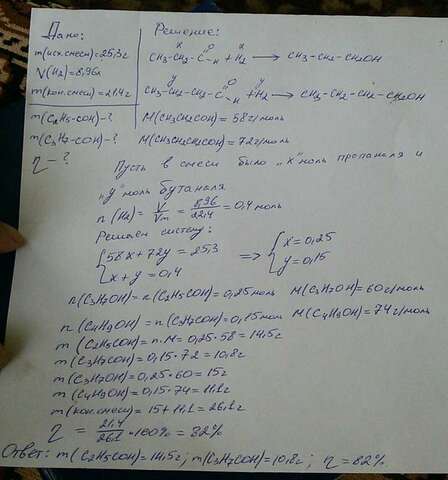 Дано:
m(исх.смеси)=25,3г
V(H2)=8,96л
m(кон.смеси)=21,4г
m(C2H5-COH)-?
m(C3H7-COH)-?
η-?
Решение:
x x
CH3-CH2-C=O-H + H2 → CH3-CH2-CH2OH
y y
CH3-CH2-CH2-C=O-H + H2 → CH3-CH2-CH2-CH2OH
M(CH3CH2COH)=58г/моль
M(CH3CH2CH2COH)=72г/моль
Пусть в смеси было "x" моль пропаналя и
"y" моль бутаналя.
n(H2)=V/Vm=8,96/22,4=0,4моль
Решаем систему:
{58x+72y=25,3 => {x=0,25
{x+y=0,4 {y=0,15
n(C3H7OH)=n(C2H5COH)=0,25моль M(C3H7OH)=60г/моль
n(C4H9OH)=n(C3H7COH)=0,15моль M(C4H9OH)=74г/моль
m(C2H5COH)=n·M=0,25·58=14,5г
m(C3H7COH)=0,15·72=10,8г
m(C3H7OH)=0,25·60=15г
m(C4H9OH)=0,15·74=11,1г
m(кон.смеси)=15+11,1=26,1г
η=21,4/26,1·100%=82%
Ответ: m(C2H5COH)=14,5г; m(C3H7COH)=10,8г; η=82%